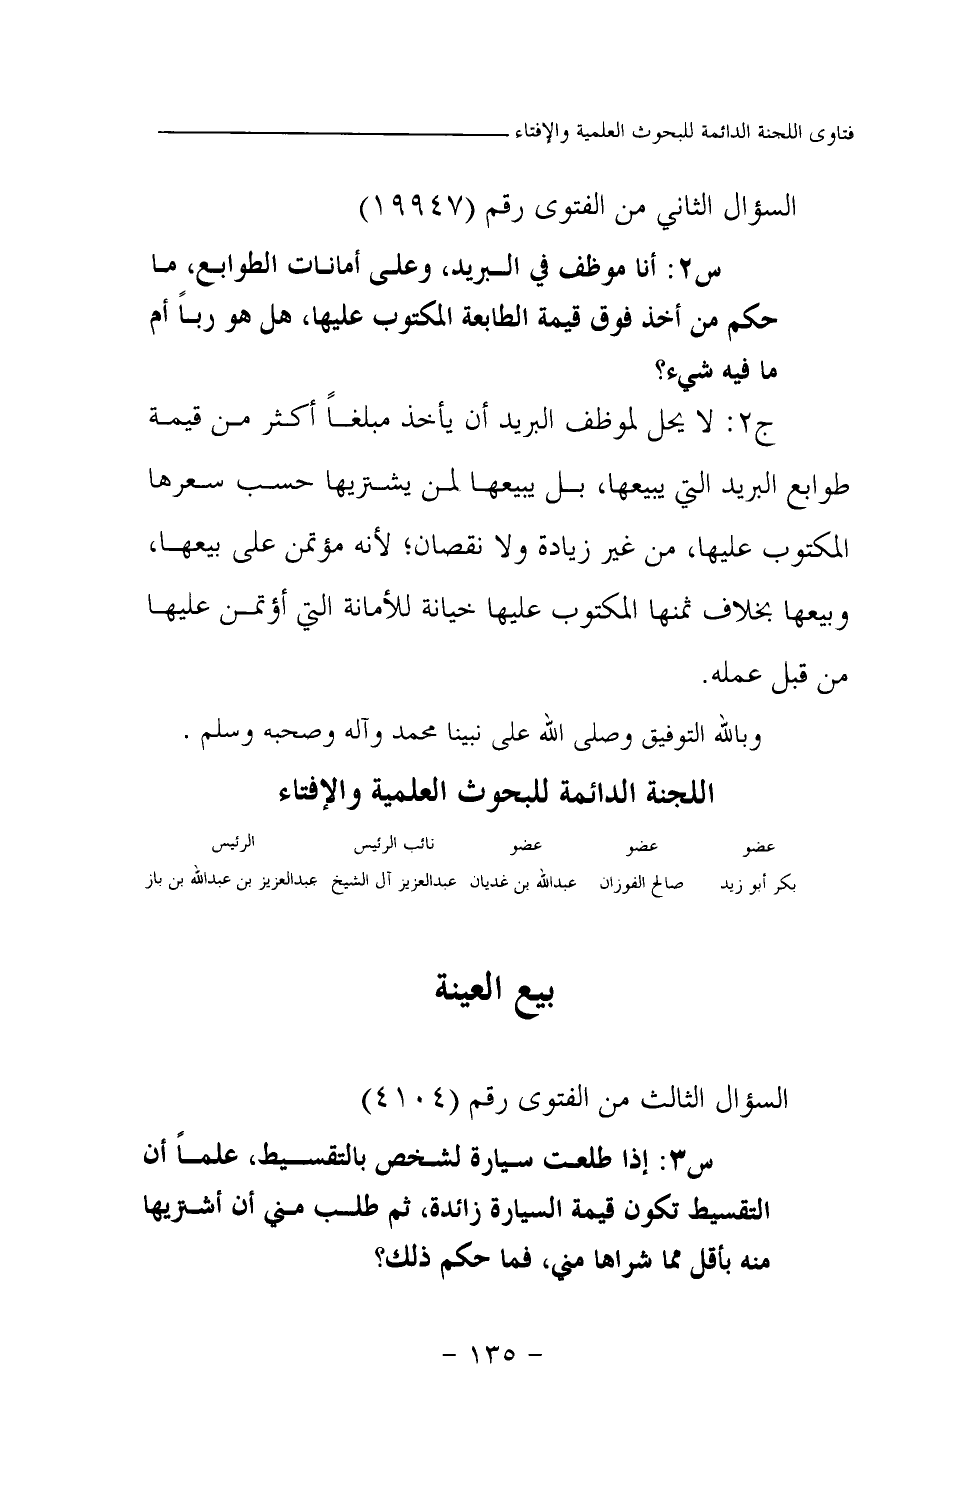 فتاوى اللجنة الدائمة للبحوث العلمية والإفتاء
السؤال الثاني من الفتوى رقم (١٩٩٤٧)
س٢: أنا موظف في البريد، وعلى أمانات الطوابع، ما
حكم من أخذ فوق قيمة الطابعة المكتوب عليها، هل هو رباً أم
ما فيه شيء؟
ج٢: لا يحل لموظف البريد أن يأخذ مبلغاً أكثر من قيمة
طوابع البريد التي يبيعها، بل يبيعها لمن يشتريها حسب سعرها
المكتوب عليها، من غير زيادة ولا نقصان؛ لأنه مؤتمن على بيعها،
وبيعها بخلاف ثمنها المكتوب عليها خيانة للأمانة التي أؤتمن عليها
من قبل عمله.
وبالله التوفيق وصلى الله على نبينا محمد وآله وصحبه وسلم .
اللجنة الدائمة للبحوث العلمية والإفتاء
عضو عضو عضو نائب الرئيس الرئيس
بكر أبو زيد صالح الفوزان عبدالله بن غديان عبدالعزيز آل الشيخ عبدالعزيز بن عبدالله بن باز
بيع العينة
السؤال الثالث من الفتوى رقم (٤١٠٤)
س٣: إذا طلعت سيارة لشخص بالتقسيط، علماً أن
التقسيط تكون قيمة السيارة زائدة، ثم طلب مني أن أشتريها
منه بأقل مما شراها مني، فما حكم ذلك؟
- ١٣٥ -